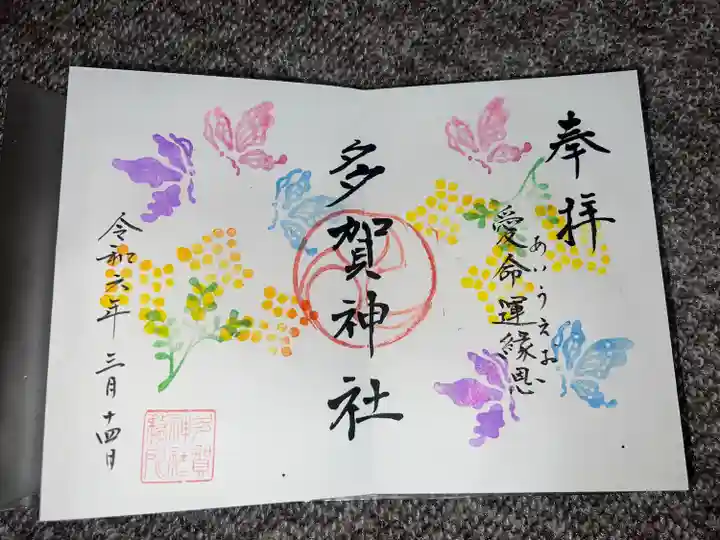 奉拝
あいうえお
愛命運縁恩
多賀神社
令和六年三月十四日